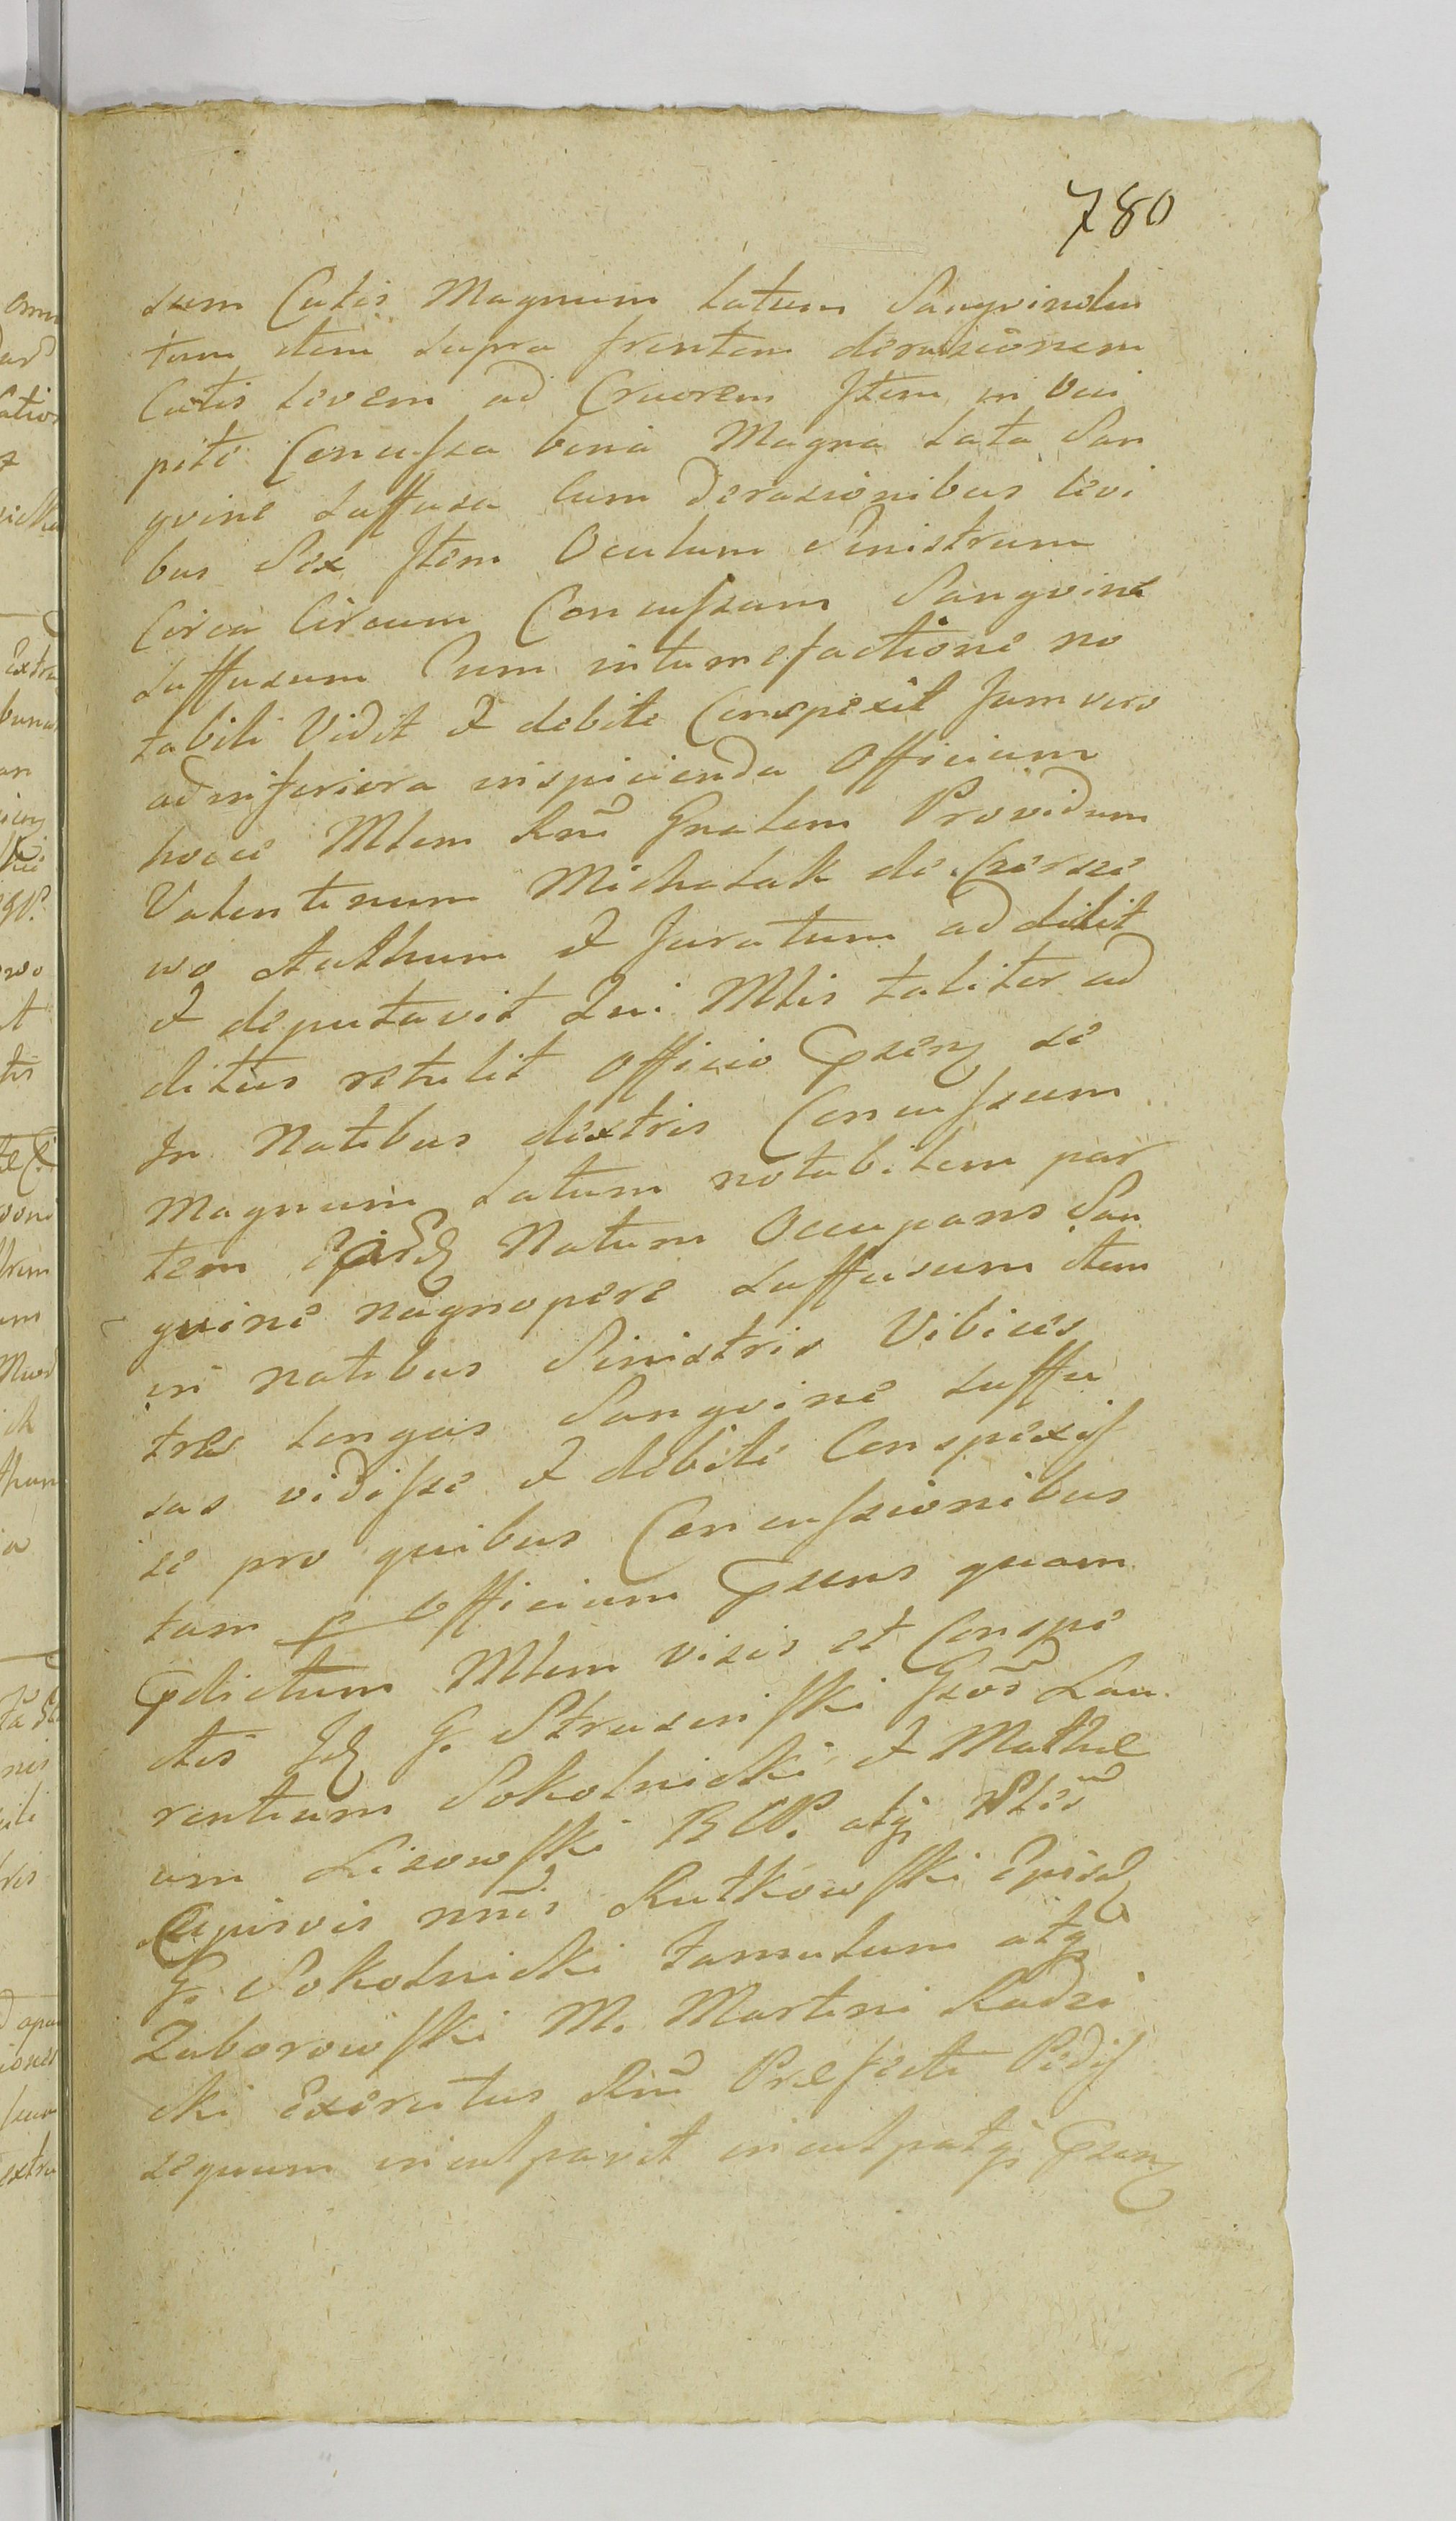 780
sum Cutis Magnum latum Sangvinolen
tum item supra frontem derasionem
Cutis levem ad Cruorem Item in Occi
pite Concussa bina Magna lata San
gvine suffusa Cum Derasionibus levi
bus Sex Item Oculum Sinistrum
Circa Circum Concussum Sangvine
suffusum Cum intumefactione no
tabili Vidit et debite Conspexit Jam vero
ad inferiora inspicienda Officium
hocce Mlem Rni Gnalem Providum
Valentinum Michalak de Czersze
wo Authum et Juratum addidit
et deputavit Qui Mlis taliter ad
ditus retulit Officio Pzenz se
In Natibus dextris Concussum
Magnum latum notabilem par
tem Natum Occupans San
guine magnopere suffusum item
in natibus Sinistris Vibices
tres longas Sangvine suffu
sas vidisse et debite Conspexis
se pro quibus Concussionibus
tam p Officium Pzens quam
Pdictum Mlem visis et Conspe
ctis Idem G. Struzinski Gsos Lau
rentium Sokolnicki et Mathe
um Lisowski atq
Cujusvis nnis Rutkowski
G. Sokolnicki famulum atq
Zaborowski M. Martini Radzi
cki Exercitus Rni Præfecti Pedis
sequum inculpavit inculpatq Pzenz